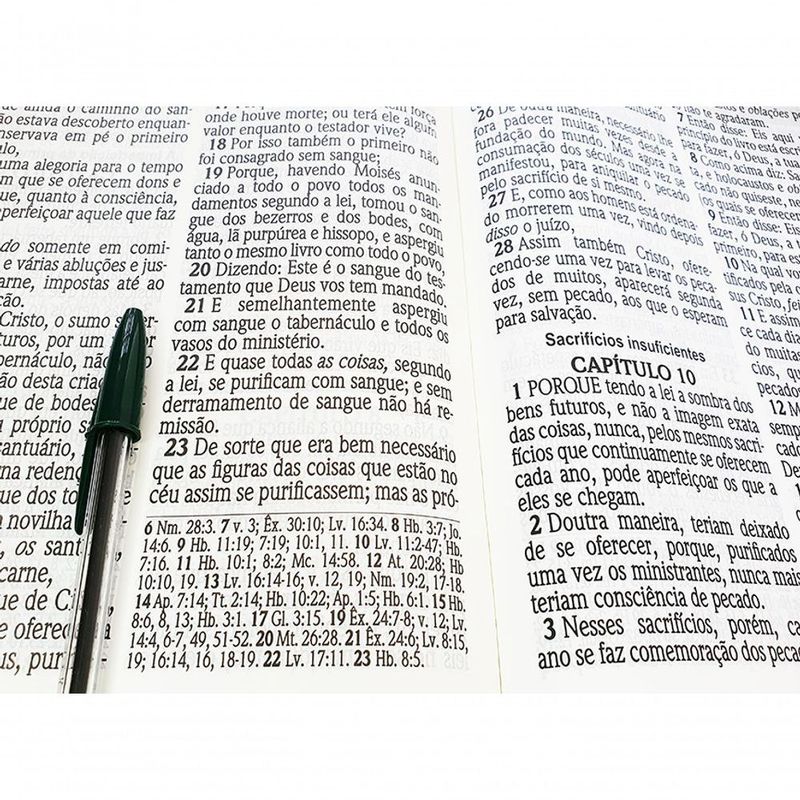 que ainda o caminho do san-
ão estava descoberto enquan-
nservava em pé o primeiro
ulo,
uma alegoria para o tempo
m que se oferecem dons e
ue, quanto à consciência,
perfeiçoar aquele que faz
do somente em comi-
e várias abluções e jus-
arne, impostas até ao
ção.
Cristo, o sumo
turos, por um
bernáculo,
ão desta
de bodes
próprio
antuário,
na
dos
novilha
os
carne,
ue de
e
us,
17
força
onde houve morte; ou terá ele algum
valor enquanto o testador vive?
18 Por isso também o primeiro não
foi consagrado sem sangue;
19 Porque, havendo Moisés anun-
ciado a todo o povo todos os man-
damentos segundo a lei, tomou o san-
gue dos bezerros e dos bodes, com
água, lã purpúrea e hissopo, e aspergiu
tanto o mesmo livro como todo o povo,
20 Dizendo: Este é o sangue do tes-
tamento que Deus vos tem mandado.
21 E semelhantemente aspergiu
com sangue o tabernáculo e todos os
vasos do ministério.
22 E quase todas as coisas, segundo
a lei, se purificam com sangue; e sem
derramamento de sangue não há re-
missão.
23 De sorte que era bem necessário
que as figuras das coisas que estão no
céu assim se purificassem; mas as pró-
6 Nm. 28:3. 7 v. 3; Êx. 30:10; Lv. 16:34. 8 Hb. 3:7; Jo.
14:6. 9 Hb. 11:19; 7:19; 10:1, 11. 10 Lv. 11:2-47; Hb.
7:16. 11 Hb. 10:1; 8:2; Mc. 14:58. 12 At. 20:28; Hb
10:10, 19. 13 Lv. 16:14-16; v. 12, 19; Nm. 19:2, 17-18.
14 Ap. 7:14; Tt. 2:14; Hb. 10:22; Ap. 1:5; Hb. 6:1. 15 Hb.
8:6, 8, 13; Hb. 3:1. 17 Gl. 3:15. 19 Êx. 24:7-8; v. 12; Lv.
14:4, 6-7, 49, 51-52. 20 Mt. 26:28. 21 Êx. 24:6; Lv. 8:15,
19; 16:14, 16, 18-19. 22 Lv. 17:11. 23 Hb. 8:5.
26 De outra maneira, necessário lhe
fora padecer muitas vezes desde a
fundação do mundo. Mas agora na
consumação dos séculos uma vez se
manifestou, para aniquilar o pecado
pelo sacrifício de si mesmo.
27 E, como aos homens está ordena-
do morrerem uma vez, vindo depois
disso o juízo,
28 Assim também Cristo, ofere-
cendo-se uma vez para levar os peca-
dos de muitos, aparecerá segunda
vez, sem pecado, aos que o esperam
para salvação.
Sacrifícios insuficientes
CAPÍTULO 10
1 PORQUE tendo a lei a sombra dos
bens futuros, e não a imagem exata
das coisas, nunca, pelos mesmos sacri-
fícios que continuamente se oferecem
cada ano, pode aperfeiçoar os que a
eles se chegam.
2 Doutra maneira, teriam deixado
de se oferecer, porque, purificados
uma vez os ministrantes, nunca mais
teriam consciência de pecado.
3 Nesses sacrifícios, porém, ca
ano se faz comemoração dos peca
e oblações po
não te agradaram.
7 Então disse: Eis aqui
princípio do livro está escri
para fazer, ó Deus, a tua
8 Como acima diz: Sa
e holocaustos e ob
cado não quiseste, ne
os quais se oferecem
9 Então disse: Eis
fazer, ó Deus, a
primeiro, para est
10 Na qual vo
tificados pela o
sus Cristo, fei
11 E assim
ce cada dia
do muitas
cios, qu
pecados
12 M
semp
cado
De